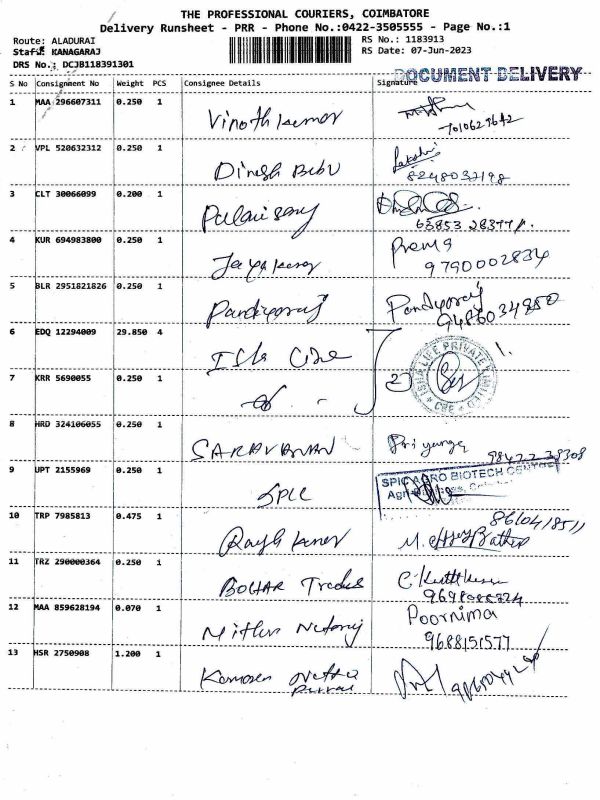 THE PROFESSIONAL COURIERS, COIMBATORE
Delivery Runsheet - PRR - Phone No.:0422-3505555 - Page No.:1
Route: ALADURAI RS No.: 1183913
Staff: KANAGARAJ RS Date: 07-Jun-2023
DRS No.: DCJB118391301
DOCUMENT DELIVERY
S No Consignment No Weight PCS Consignee Details Signature
1 MAA 296607311 0.250 1 Vinoth kumar
7010629642
2 VPL 520632312 0.250 1 Dinesh Babu Lakshmi
8248032198
3 CLT 30066099 0.200 1 Palanisamy
63853 28377
4 KUR 694983800 0.250 1 Jayakumar Prema
9790002834
5 BLR 2951821826 0.250 1 Pandiyaraj Pandiyaraj
9486034850
6 EDQ 12294009 29.850 4 Isha
ISHA LIFE PRIVATE LIMITED
CBE
7 KRR 5690055 0.250 1
8 HRD 324106055 0.250 1 SARAVANAN Priyanga
9 UPT 2155969 0.250 1 SPIC
SPIC AGRO BIOTECH CENTRE
10 TRP 7985813 0.475 1 8610418511
11 TRZ 290000364 0.250 1 BOHAR Trades
12 MAA 859628194 0.070 1 Poornima
9688151577
13 HSR 2750908 1.200 1